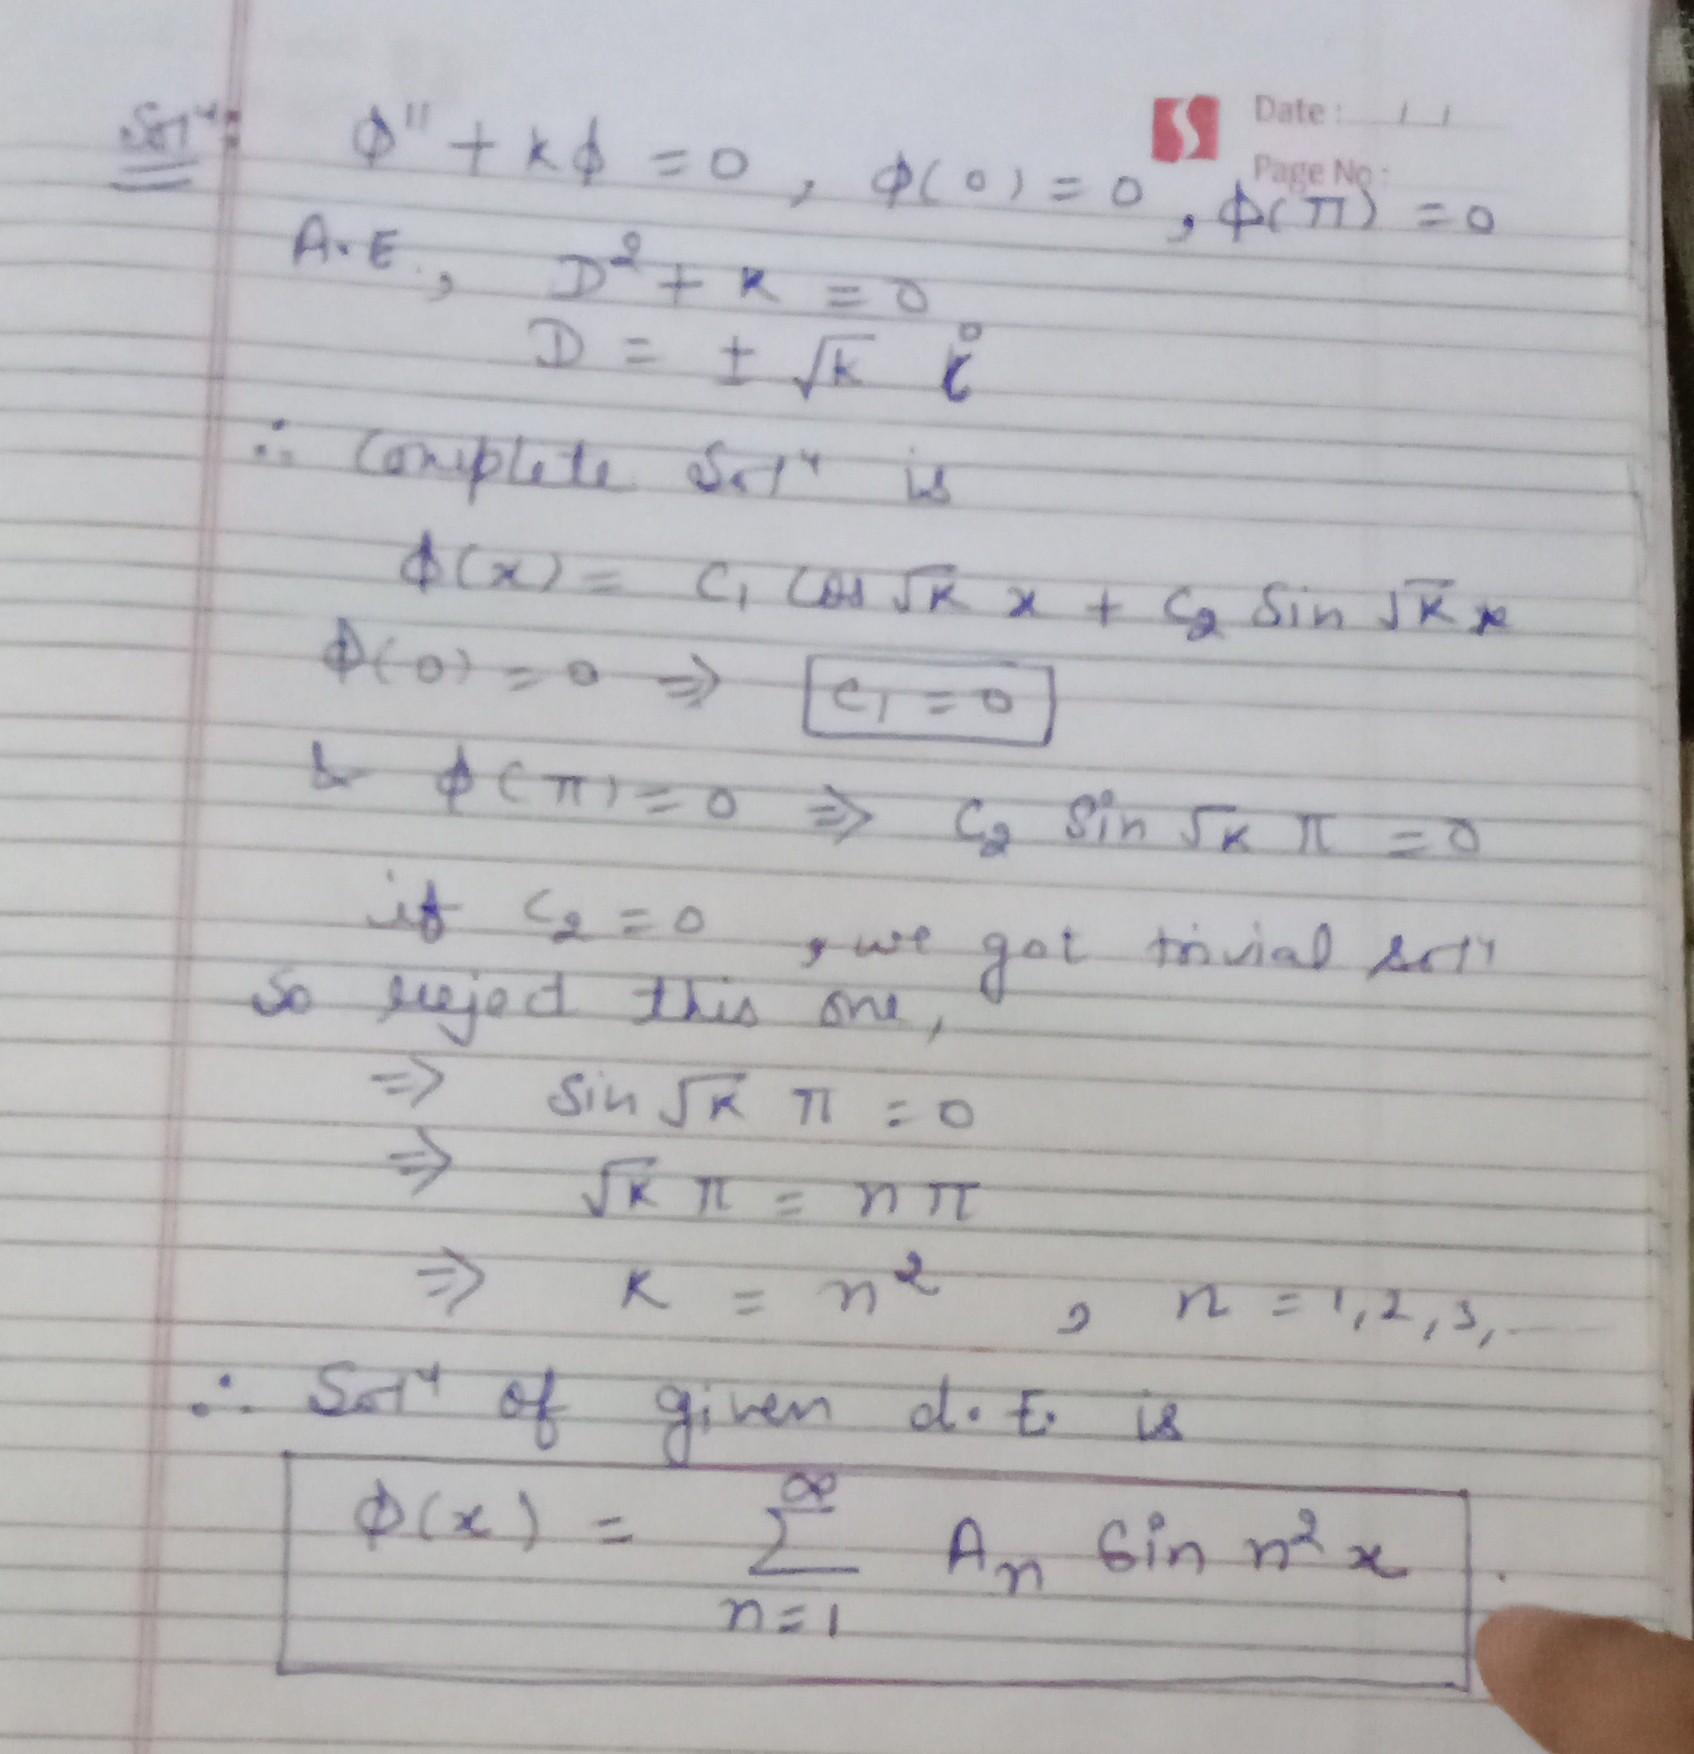 Date :
Page No :
Solⁿ: Φ'' + kϕ = 0 , Φ(0) = 0 , Φ(π) = 0
A.E., D² + k = 0
D = ± √k i
∴ Complete Solⁿ is
ϕ(x) = C₁ cos √k x + C₂ Sin √k x
Φ(0) = 0 ⇒ C₁ = 0
& ϕ(π) = 0 ⇒ C₂ Sin √k π = 0
if C₂ = 0 , we got trivial solⁿ
So reject this one,
⇒ Sin √k π = 0
⇒ √k π = nπ
⇒ k = n² , n = 1, 2, 3, ---
∴ Solⁿ of given d.E. is
Φ(x) = ∞∑n=1 Aₙ Sin n² x .